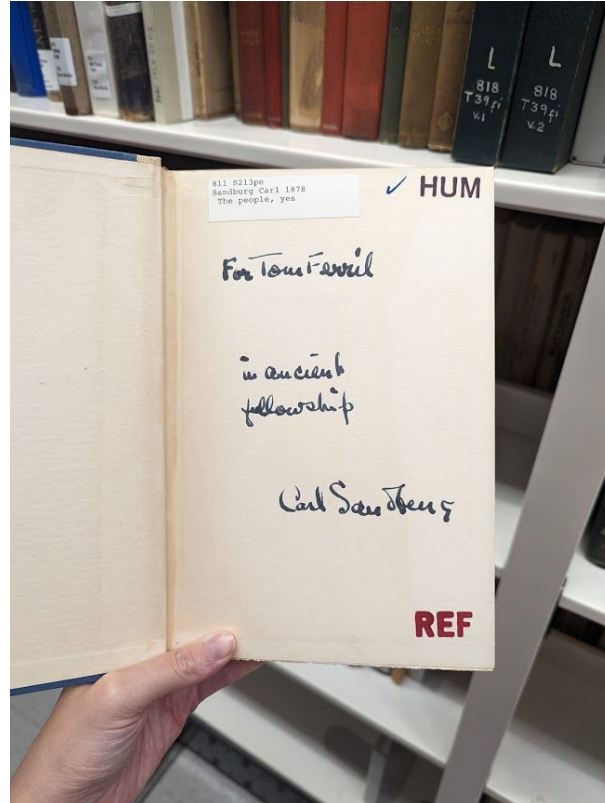 L
818
T39fi
V.1
L
818
T39fi
V.2
811 S213pe
Sandburg Carl 1878
The people, yes
✓ HUM
For Tom Ferril
in ancient
fellowship
Carl Sandburg
REF